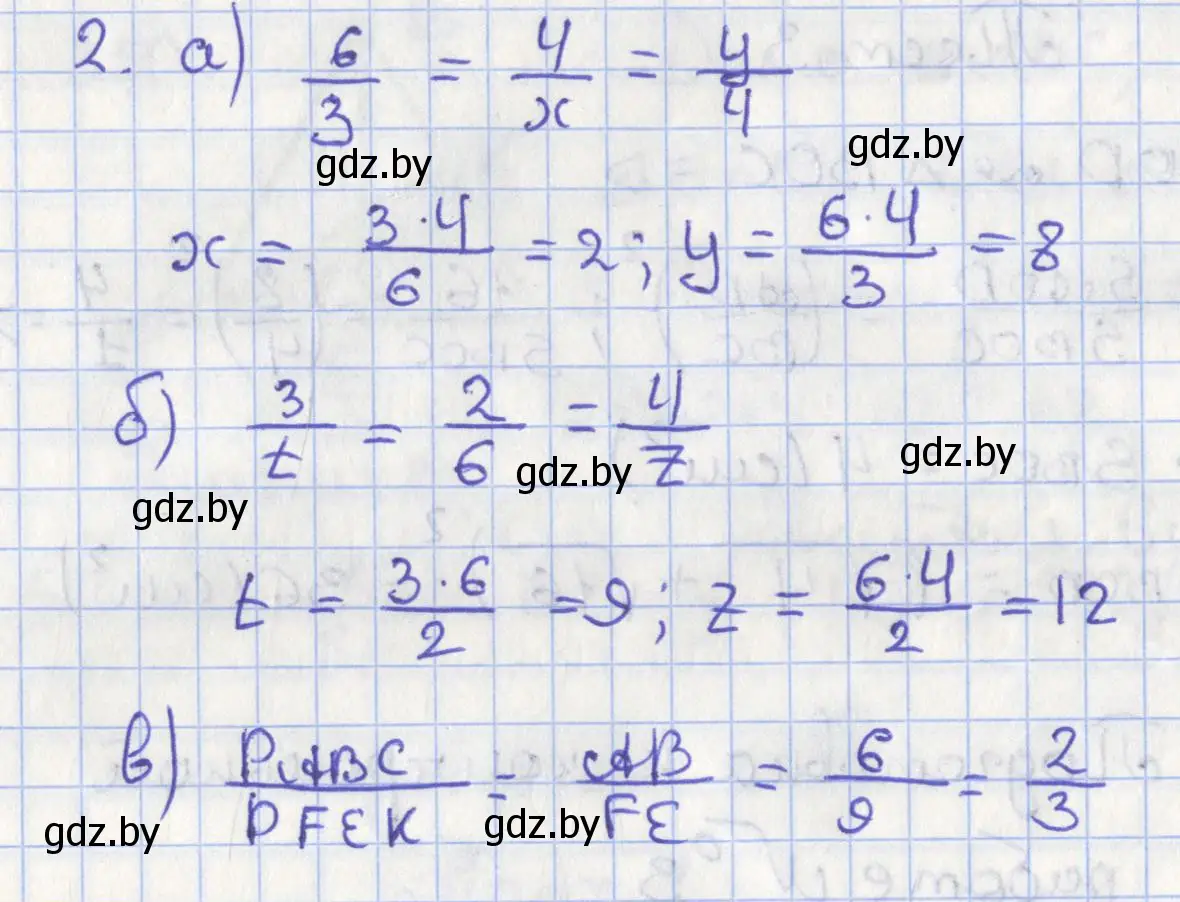 2. а) 6/3 = 4/x = y/4
gdz.by gdz.by
x = 3·4/6 = 2; y = 6·4/3 = 8
б) 3/t = 2/6 = 4/z
gdz.by gdz.by gdz.by
t = 3·6/2 = 9; z = 6·4/2 = 12
в) PABC/PFEK = AB/FE = 6/9 = 2/3
gdz.by gdz.by